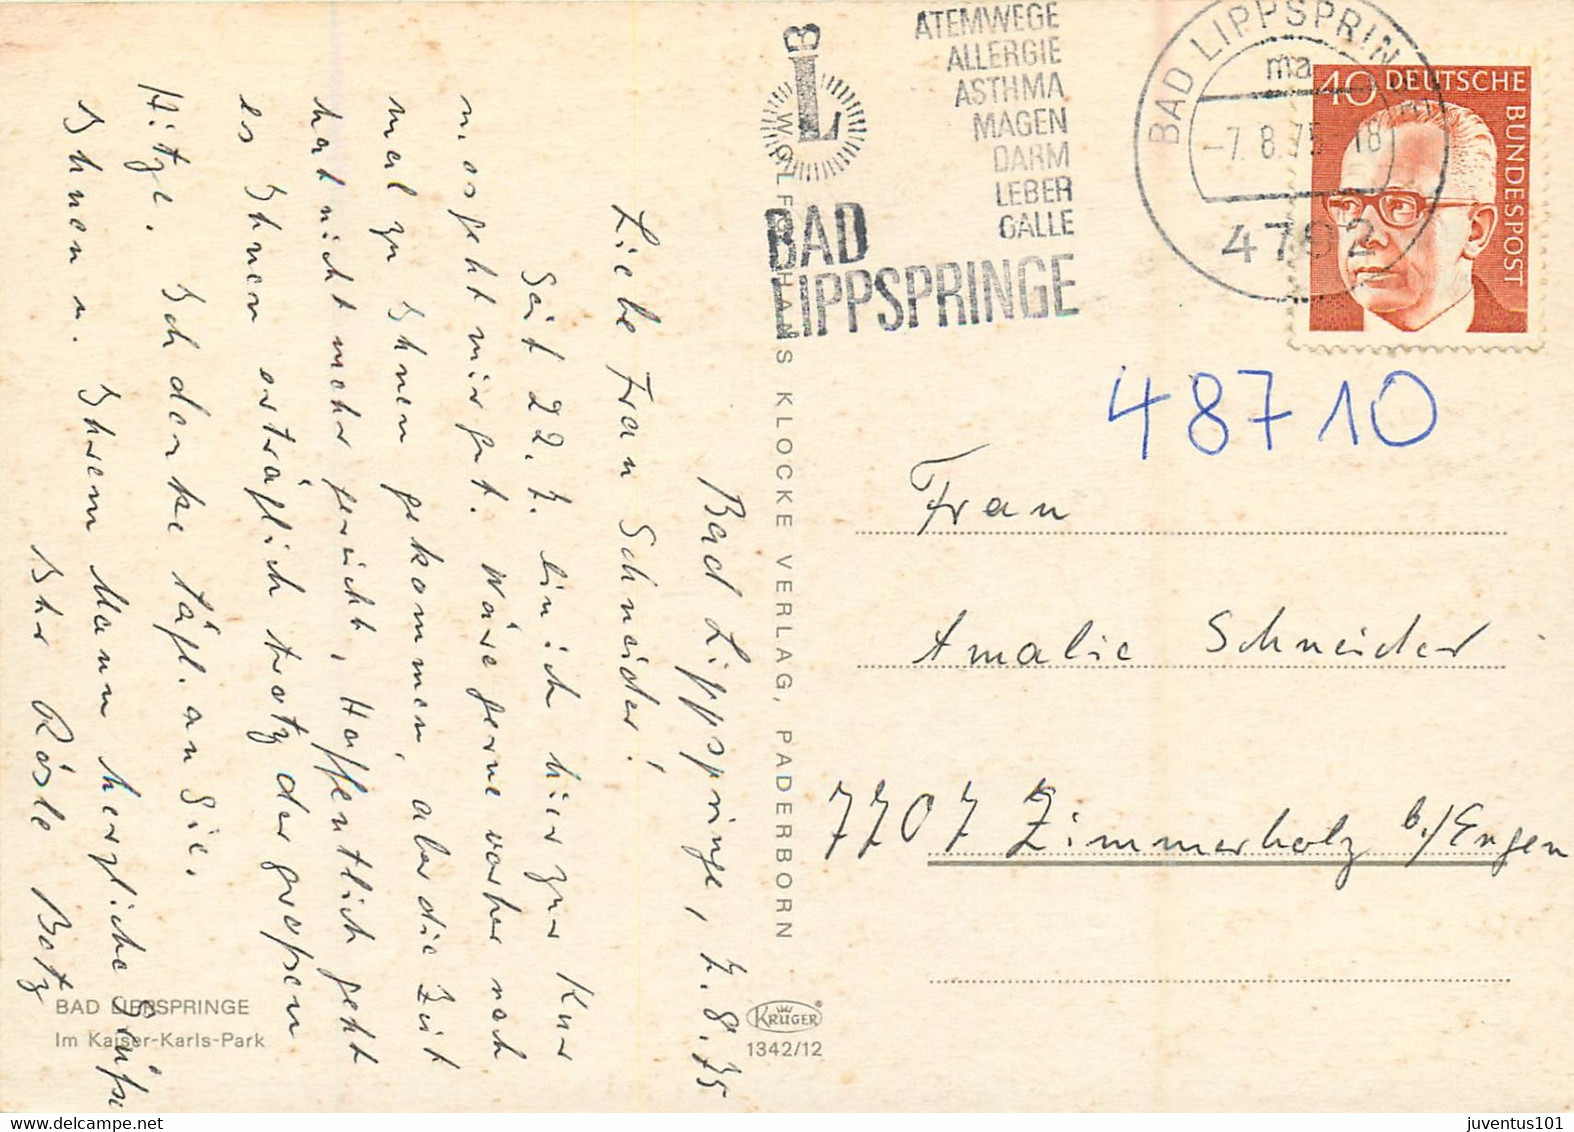 ATEMWEGE
ALLERGIE
ASTHMA
MAGEN
DARM
LEBER
GALLE
BAD
LIPPSPRINGE
BAD LIPPSPRINGE
ma
-7. 8. 75 - 18
4792
40 DEUTSCHE
BUNDESPOST
48710
Frau
Amalie Schneider
7707 Zimmerholz b./Engen
WOLFGANG HANS KLOCKE VERLAG, PADERBORN
Bad Lippspringe, 7.8.75
Liebe Frau Schneider!
Seit 22.7. bin ich hier zur Kur
u. es geht mir gut. Wäre gerne vorher noch
mal zu Ihnen gekommen, aber die Zeit
hat nicht mehr gereicht, Hoffentlich geht
es Ihnen erträglich trotz der großen
Hitze. Ich denke tägl. an Sie.
Ihnen u. Ihrem Mann herzliche Grüße
Ihr Rösle Botz
BAD LIPPSPRINGE
Im Kaiser-Karls-Park
KRÜGER
1342/12
juventus101